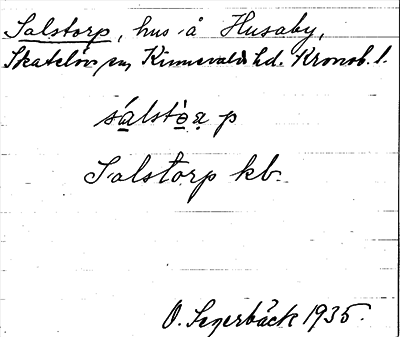 Salstorp, hus å Husaby,
Skatelövs sn, Kinnevalds hd. Kronob. l.
sálstòrp
Salstorp kb.
O. Segerbäck 1935.